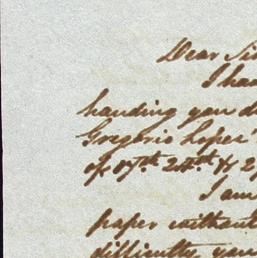 Dear Sir
I have
handing you d
Gregorio Lopez'
of 17th. 24th & 2
I am
paper without
difficulty you